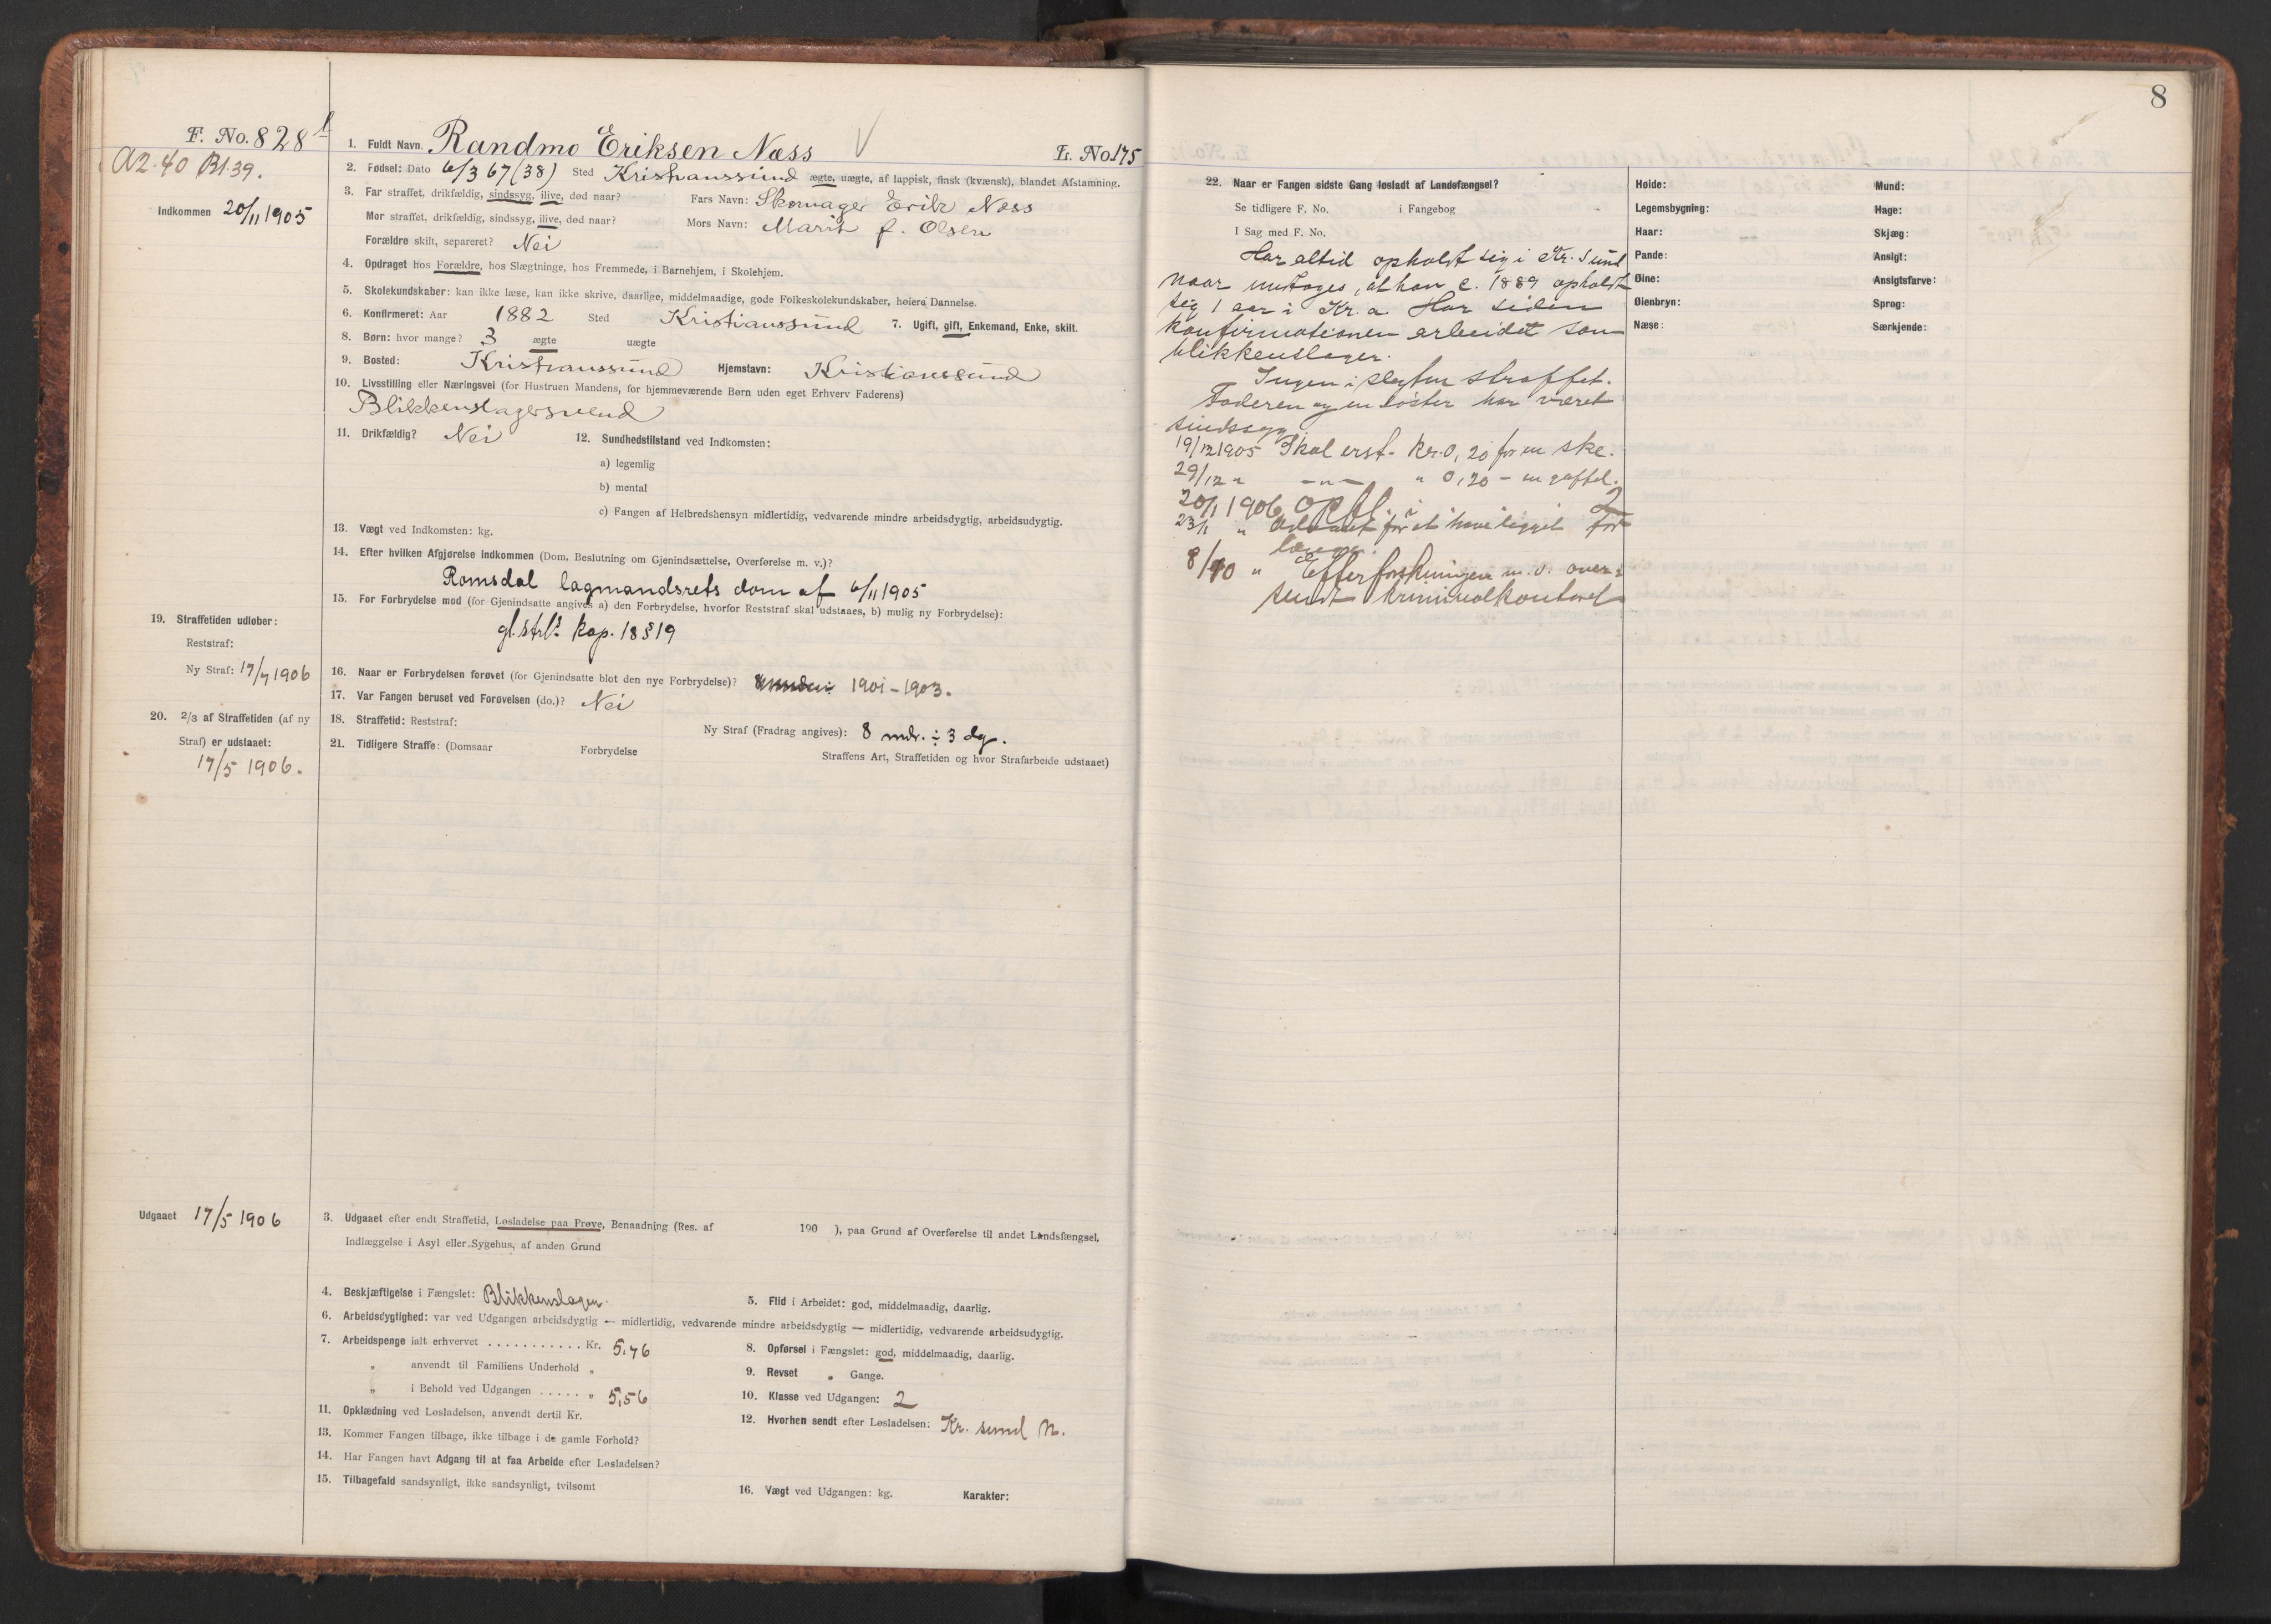 8
F. No. 828
A2.40 Bl.39.
Indkommen 20/11 1905
1. Fuldt Navn. Randmo Eriksen Næss
L. No. 175
2. Fødsel: Dato 6/3 67 (38) Sted Kristianssund ægte, uægte, af lappisk, finsk (kvænsk), blandet Afstamning.
3. Far straffet, drikfældig, sindssyg, ilive, død naar? Fars Navn: Skomager Erik Næss
Mor straffet, drikfældig, sindssyg, ilive, død naar? Mors Navn: Marit f. Olsen
Forældre skilt, separeret? Nei
4. Opdraget hos Forældre, hos Slægtninge, hos Fremmede, i Barnehjem, i Skolehjem.
5. Skolekundskaber: kan ikke læse, kan ikke skrive, daarlige, middelmaadige, gode Folkeskolekundskaber, høiere Dannelse.
6. Konfirmeret: Aar 1882 Sted Kristianssund 7. Ugift, gift, Enkemand, Enke, skilt.
8. Børn: hvor mange? 3 ægte uægte
9. Bosted: Kristianssund Hjemstavn: Kristianssund
10. Livsstilling eller Næringsvei (for Hustruen Mandens, for hjemmeværende Børn uden eget Erhverv Faderens)
Blikkenslagersvend
11. Drikfældig? Nei 12. Sundhedstilstand ved Indkomsten:
a) legemlig
b) mental
c) Fangen af Helbredshensyn midlertidig, vedvarende mindre arbeidsdygtig, arbeidsudygtig.
13. Vægt ved Indkomsten: kg.
14. Efter hvilken Afgjørelse indkommen (Dom, Beslutning om Gjenindsættelse, Overførelse m. v.)?
Romsdal lagmandsrets dom af 6/11 1905
15. For Forbrydelse mod (for Gjenindsatte angives a) den Forbrydelse, hvorfor Reststraf skal udstaaes, b) mulig ny Forbrydelse):
gl. strl. kap. 18 § 19
19. Straffetiden udløber:
Reststraf:
Ny Straf: 17/7 1906
16. Naar er Forbrydelsen forøvet (for Gjenindsatte blot den nye Forbrydelse)? 1901-1903.
17. Var Fangen beruset ved Forøvelsen (do.)? Nei
20. 2/3 af Straffetiden (af ny
Straf) er udstaaet:
17/5 1906.
18. Straffetid: Reststraf: Ny Straf (Fradrag angives): 8 mdr. ÷ 3 dg.
21. Tidligere Straffe: (Domsaar Forbrydelse Straffens Art, Straffetiden og hvor Strafarbeide udstaaet)
Udgaaet 17/5 1906
3. Udgaaet efter endt Straffetid, Løsladelse paa Prøve, Benaadning (Res. af 190 ), paa Grund af Overførelse til andet Landsfængsel,
Indlæggelse i Asyl eller Sygehus, af anden Grund
4. Beskjæftigelse i Fængslet: Blikkenslager.
5. Flid i Arbeidet: god, middelmaadig, daarlig.
6. Arbeidsdygtighed: var ved Udgangen arbeidsdygtig — midlertidig, vedvarende mindre arbeidsdygtig — midlertidig, vedvarende arbeidsudygtig.
7. Arbeidspenge ialt erhvervet . . . . . . . . . . . Kr. 5,76
8. Opførsel i Fængslet: god, middelmaadig, daarlig.
" anvendt til Familiens Underhold "
9. Revset " Gange.
" i Behold ved Udgangen . . . . . " 5,56
10. Klasse ved Udgangen: 2
11. Opklædning ved Løsladelsen, anvendt dertil Kr.
12. Hvorhen sendt efter Løsladelsen: Kr. sund N.
13. Kommer Fangen tilbage, ikke tilbage i de gamle Forhold?
14. Har Fangen havt Adgang til at faa Arbeide efter Løsladelsen?
15. Tilbagefald sandsynligt, ikke sandsynligt, tvilsomt
16. Vægt ved Udgangen: kg. Karakter:
22. Naar er Fangen sidste Gang løsladt af Landsfængsel?
Se tidligere F. No. i Fangebog
I Sag med F. No.
Har altid opholdt sig i Kr. Sund
naar undtages, at han c. 1889 opholdt
sig 1 aar i Kr.a. Har siden
konfirmationen arbeidet som
blikkenslager.
Ingen i slegten straffet.
Faderen og en søster har været
sindssyg.
19/12 1905 Skal erst. kr. 0,20 for en ske.
29/12 " —"— " 0,20 - en gaffel.
20/1 1906 Opfl. i 2
23/1 " for at have ligget for
længe.
8/10 " Efterforskningen m. v. over-
sendt kriminalkontoret
Høide:
Legemsbygning:
Haar:
Pande:
Øine:
Øienbryn:
Næse:
Mund:
Hage:
Skjæg:
Ansigt:
Ansigtsfarve:
Sprog:
Særkjende: